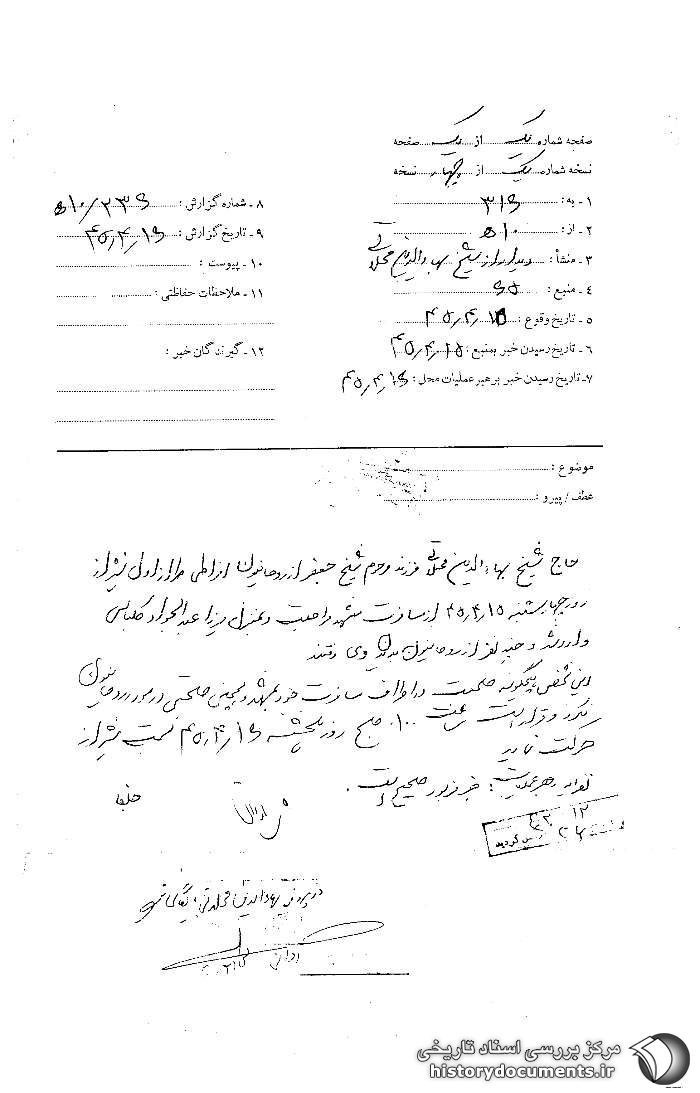 صفحه شماره یک از یک صفحه
نسخه شماره یک از چهار نسخه
۱ـ به : ۳۱۶
۲ـ از : ۵۱۰
۳ـ منشأ : دیدار از شیخ بهاءالدین محلاتی
۴ـ منبع :
۵ـ تاریخ وقوع : ۴۵٫۴٫۱۵
۶ـ تاریخ رسیدن خبر بمنبع : ۴۵٫۴٫۱۵
۷ـ تاریخ رسیدن خبر برهبر عملیات محل : ۴۵٫۴٫۱۶
۸ـ شماره گزارش : ۵۱۰/۲۳۶
۹ـ تاریخ گزارش : ۴۵٫۴٫۱۶
۱۰ـ پیوست :
۱۱ـ ملاحظات حفاظتی :
۱۲ـ گیرندگان خبر :
موضوع :
عطف / پیرو :
حاج شیخ بهاءالدین محلاتی فرزند مرحوم شیخ جعفر از روحانیون افراطی طراز اول شیراز
روز چهارشنبه ۴۵٫۴٫۱۵ از مسافرت مشهد مراجعت و بمنزل میرزا عبدالجواد
وارد شد و چند نفر از روحانیون بدیدن وی رفتند
این شخص هیچگونه صحبت در اطراف مسافرت خود بمشهد و همچنین صحبتی در مورد روحانیون
نکرد و قرار است ساعت ۱۰۰ صبح روز پنجشنبه ۴۵٫۴٫۱۶ بسمت شیراز
حرکت نماید
نظریه رهبر عملیات : خبر مزبور صحیح است .
در پرونده بهاءالدین محلاتی بایگانی شود
مرکز بررسی اسناد تاریخی
historydocuments.ir